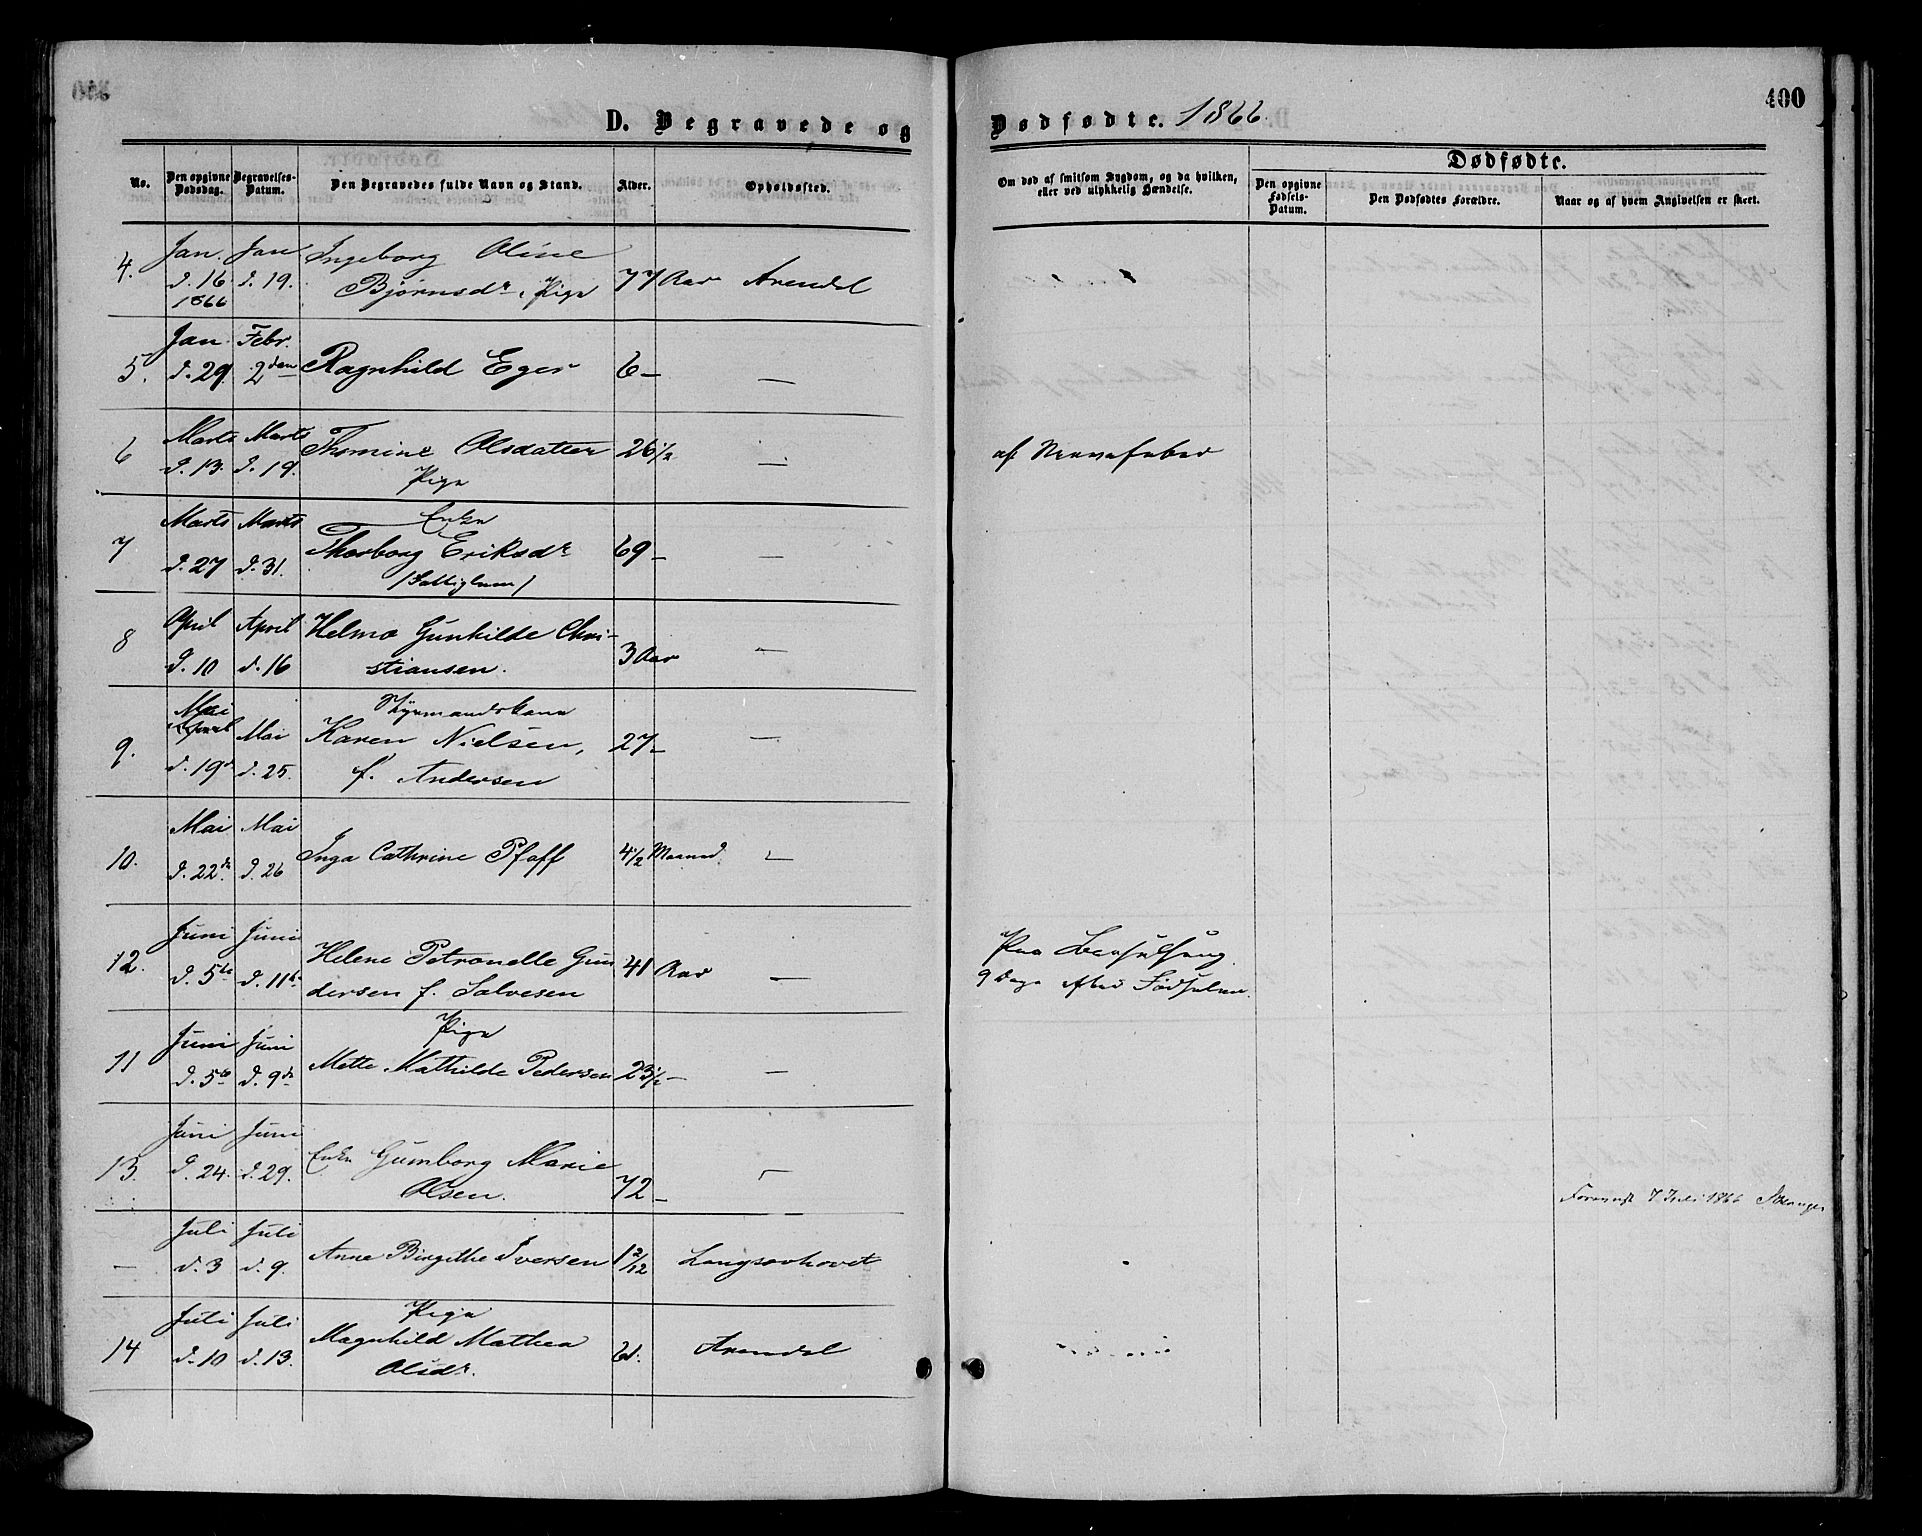 D. Begravede og
Dødfødte. 1866.
400
No.
Den opgivne Dødsdag.
Begravelses-Datum.
Den Begravedes fulde Navn og Stand.
Alder.
Opholdssted.
Om død af smitsom Sygdom, og da hvilken, eller ved ulykkelig Hændelse.
Dødfødte.
Den opgivne Fødsels-Datum.
Den Dødfødtes Forældre.
Naar og af hvem Angivelsen er skeet.
4. Jan. d. 16 1866 Jan d. 19. Ingeborg Oline
Bjørnsdr., Pige 77 Aar Arendal
5. Jan. d. 29. Febr. 2den Ragnhild Eger 6 – —
6 Marts d. 13. Marts d. 19. Thomine Olsdatter 26 1/2 —
Pige
af Nervefeber
7 Marts d. 27 Marts d. 31. Enke
Thorborg Eriksdr 69 – —
/Fattiglem/
8 April d. 10 April d. 16 Helma Gunhilde Chri-
stiansen. 3 Aar —
9. Mai April d. 19d Mai d. 25. Styrmandskone
Karen Nielsen, 27 – —
f. Andersen
10. Mai d. 22de Mai d. 26 Inga Cathrine Pfaff 4 1/2 Maaned. —
12. Juni d. 5te Juni d. 11te Helene Petronelle Gun
dersen f. Salvesen 41 Aar —
Paa Barselseng.
9 Dage efter Fødselen.
11 Juni d. 5te Juni d. 9de Pige
Mette Mathilde Pedersen 23 1/2 – —
13. Juni d. 24. Juni d. 29. Enke Gumborg Marie
Olsen. 72 – —
7 Juli 1866
— Juli d. 3 Juli d. 9. Anne Birgithe Iversen 1 2/12 Langsævhovet
14 Juli d. 10 Juli d. 13. Pige
Magnhild Mathea
Olsdr. 61. Arendal